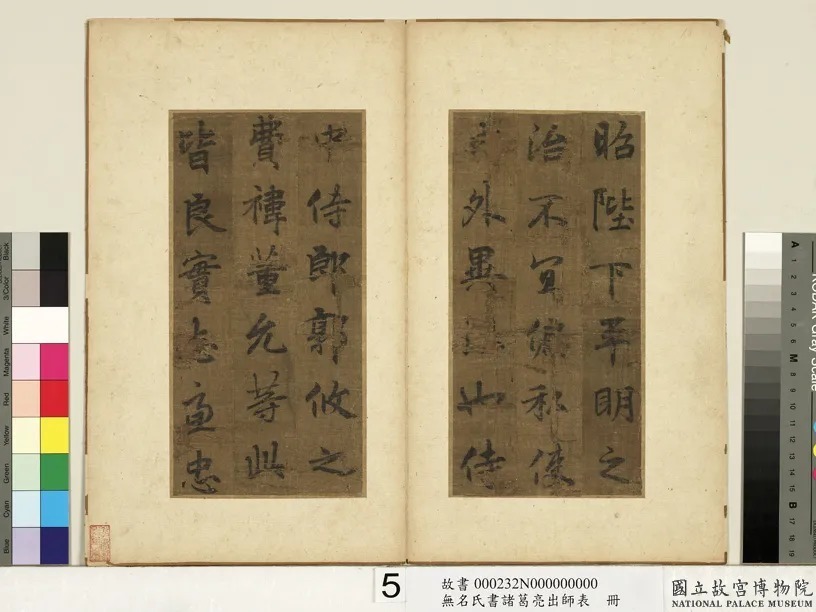 昭陛下平明之
治不宜偏私使
內外異法也侍
中侍郎郭攸之
費禕董允等此
皆良實志慮忠
5
故書 000232N000000000
無名氏書諸葛亮出師表 冊
國立故宮博物院
NATIONAL PALACE MUSEUM
Black
3/Color
White
Magenta
Red
Yellow
Green
Cyan
Blue
A 1 2 3 4 5 6 M 8 9 10 11 12 13 14 15 B 17 18 19